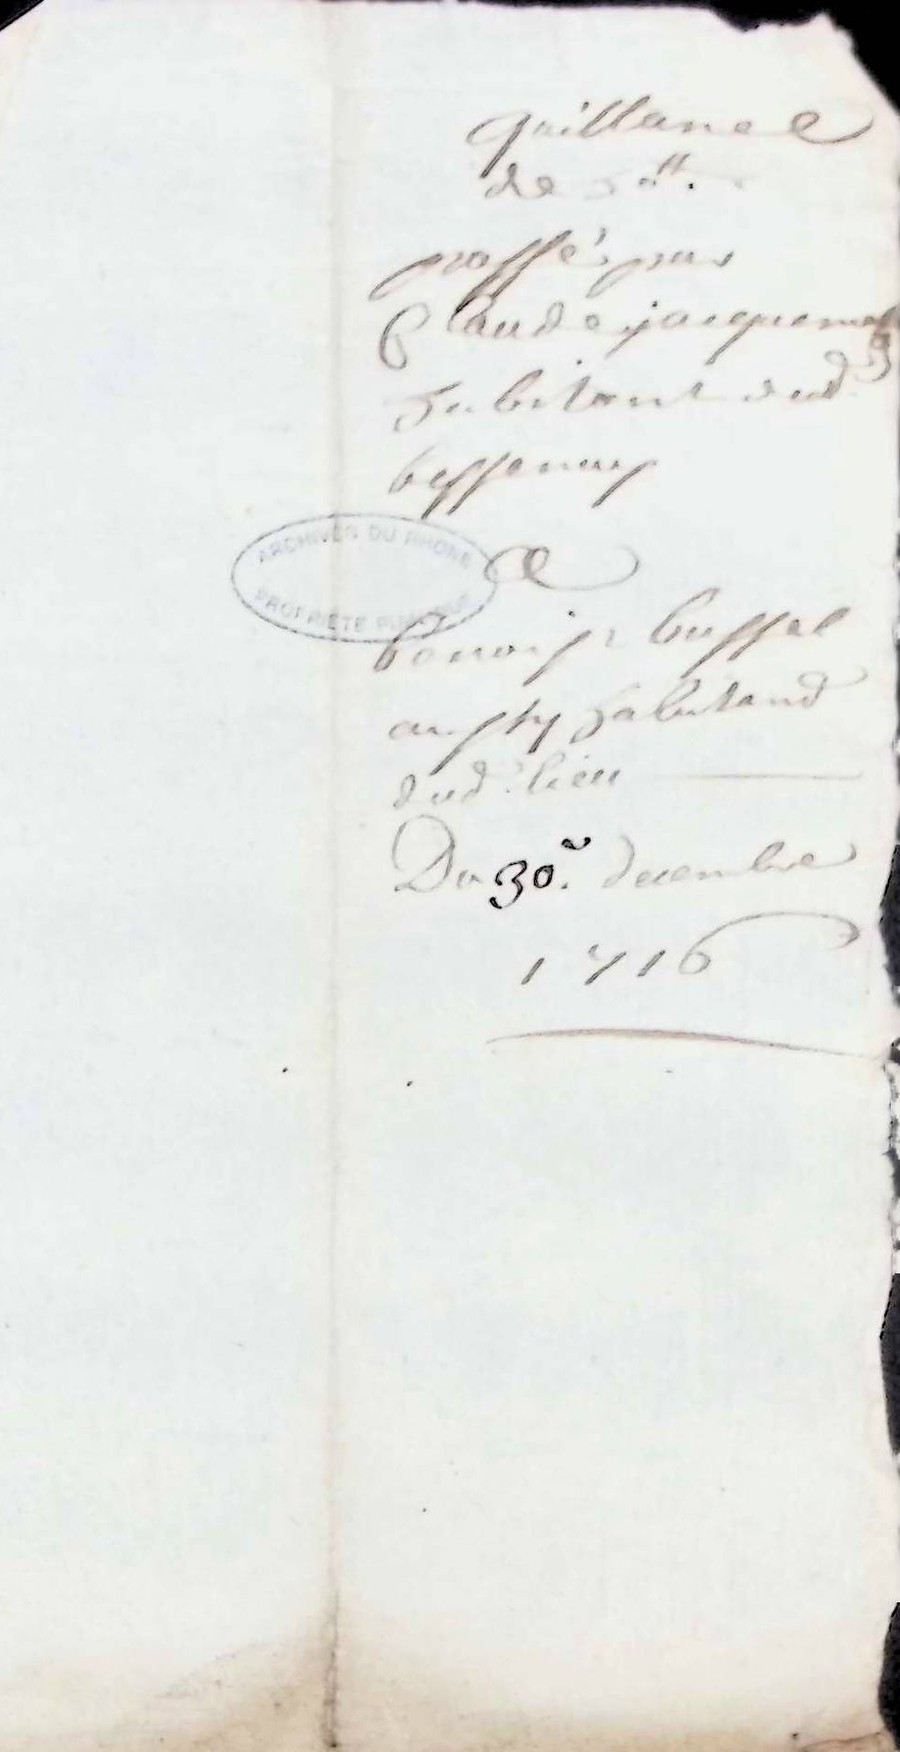 quittance
de
passé par
Claude jacquemet
habitant dud
bessenay
ARCHIVES DU RHONE
PROPRIÉTÉ PUBLIQUE
A
benoist bussel
aussy habitand
dud lieu
Du 30e decembre
1716